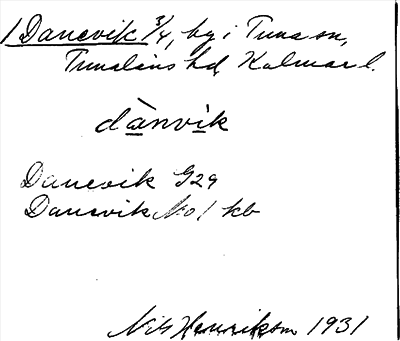 1 Danevik ¾, by i Tuna sn,
Tunaläns hd, Kalmar l.
dànvik
Danevik G29
Danevik No 1 kb
Nils Henrikson 1931